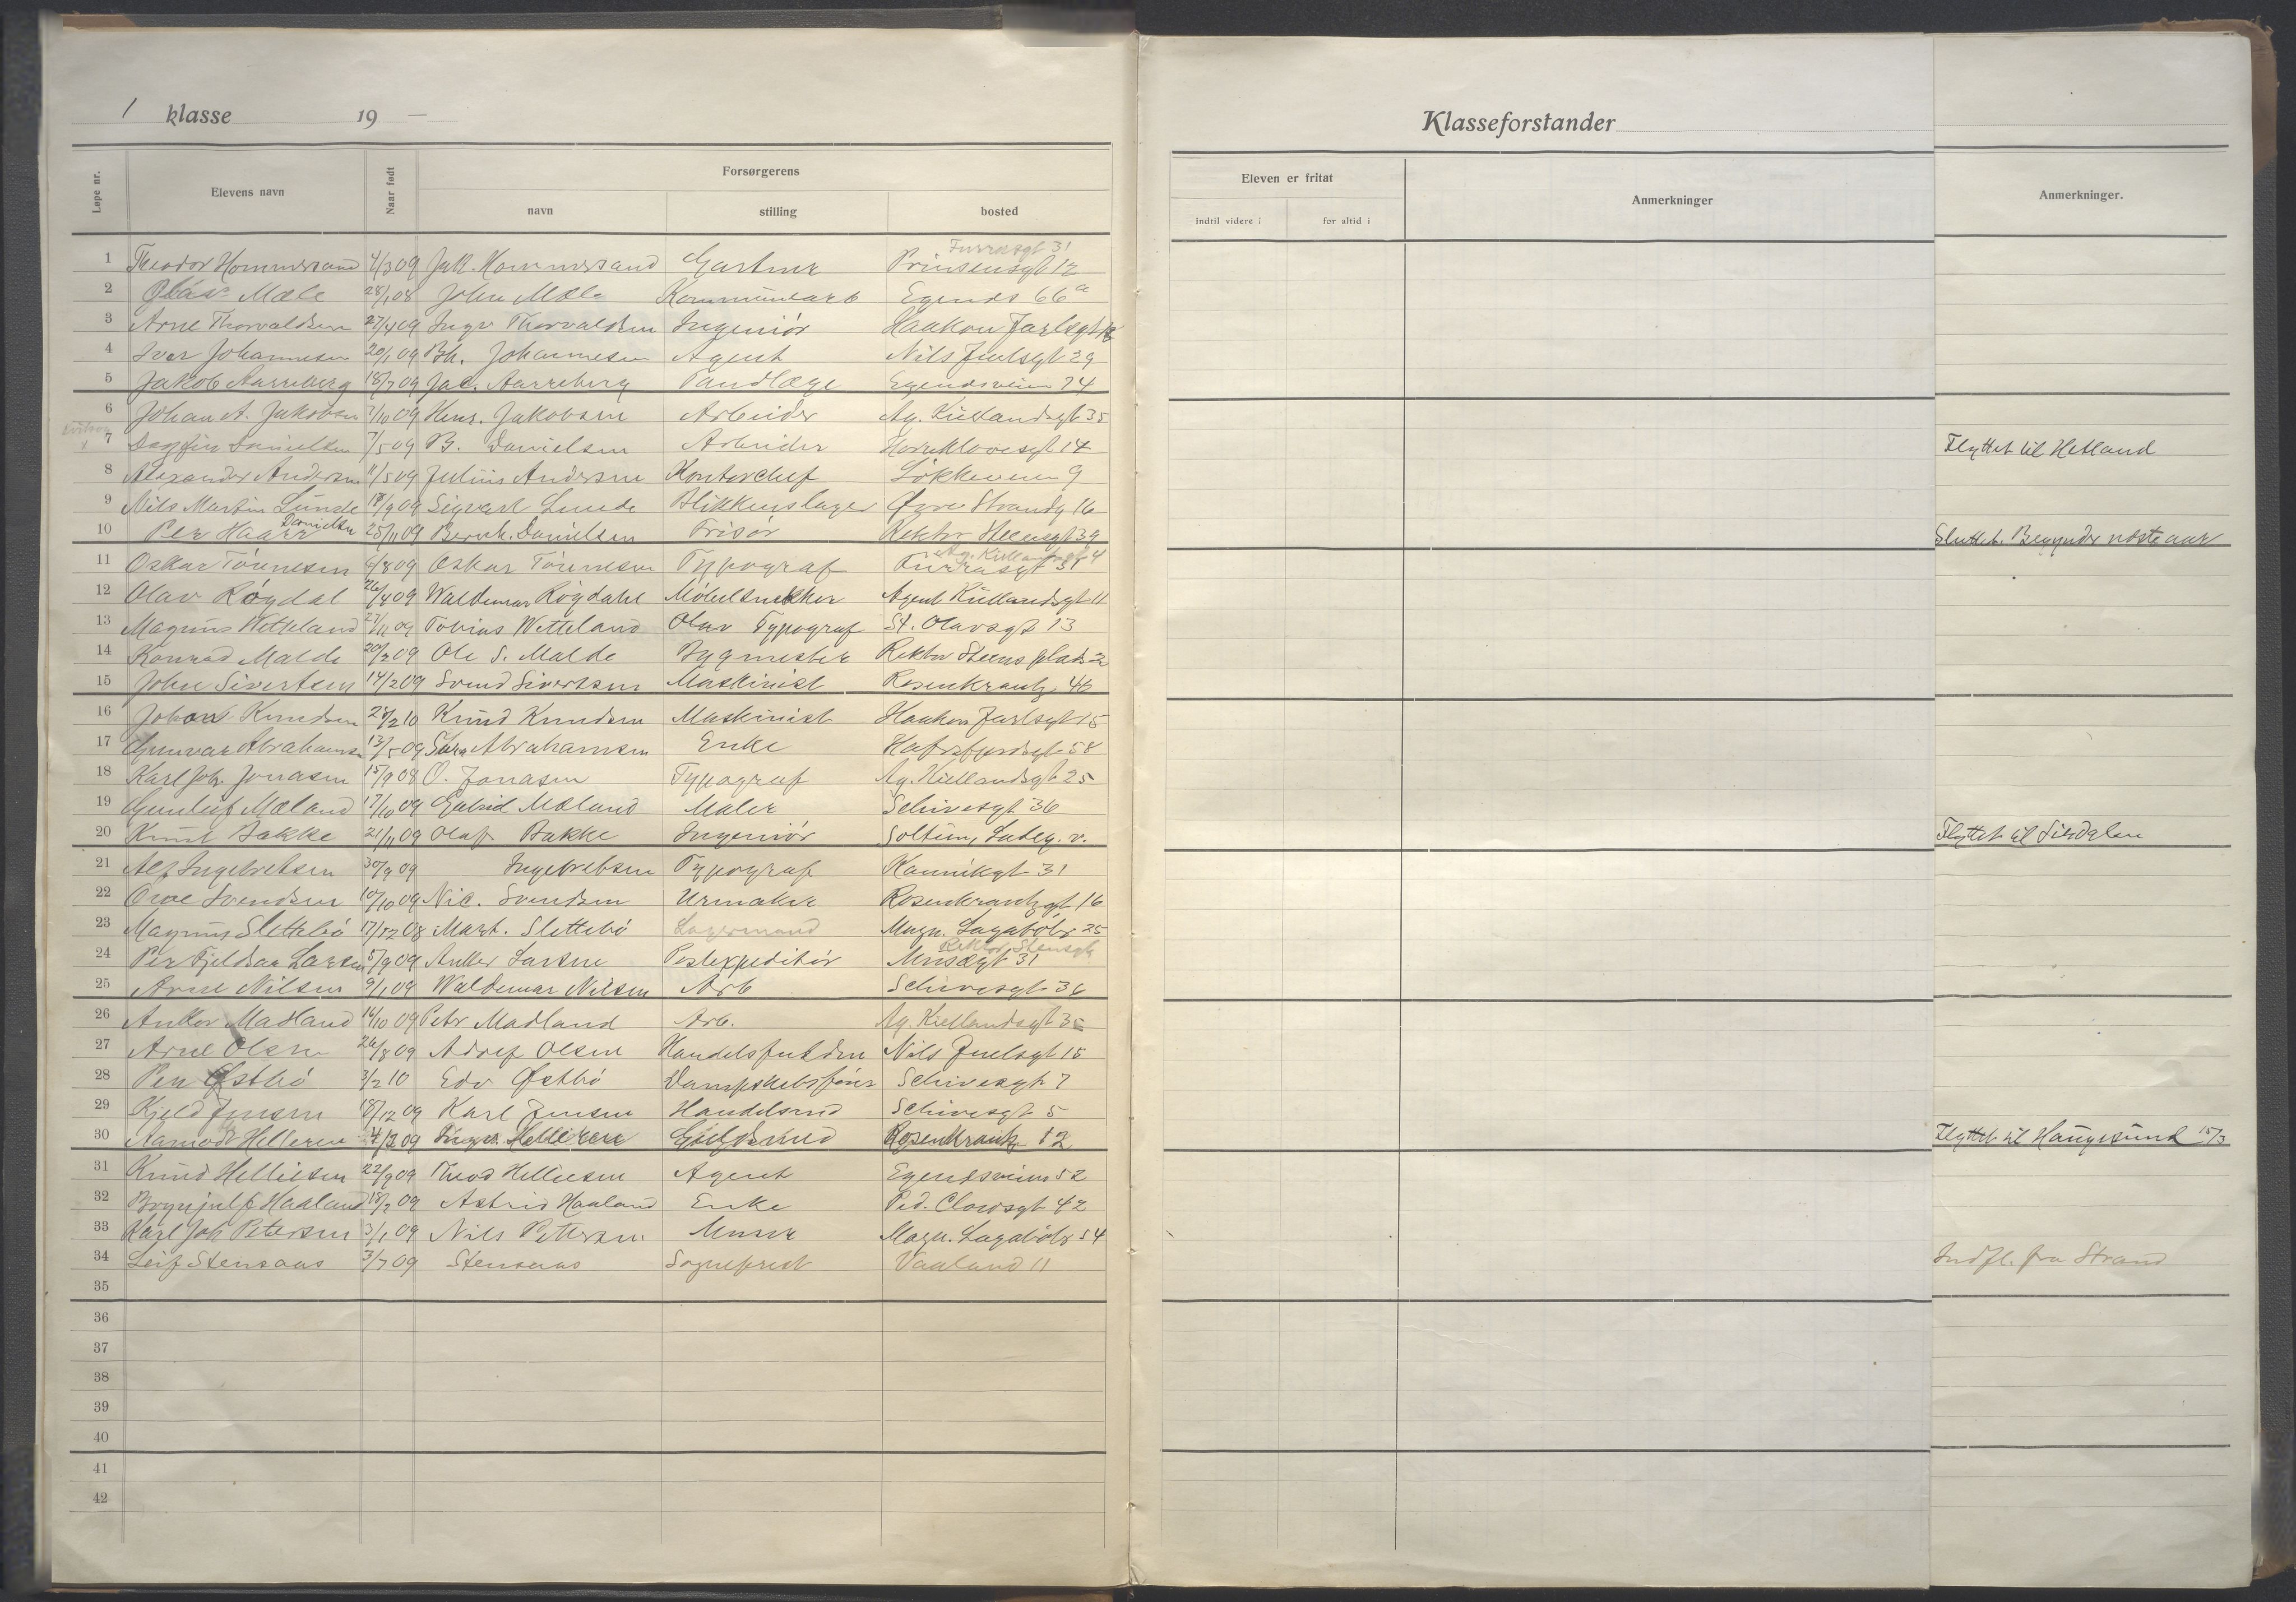 1 klasse 19 —
Klasseforstander
Løpe nr. Elevens navn Naar født Forsørgerens navn stilling bosted
Eleven er fritat indtil videre i for altid i Anmerkninger Anmerkninger.
Furrasgt 31
1 Theodor Hommersand 4/3 09 Jak. Hommersand Gartner Prinsensgt 12
2 Olav Mæle 28/1 08 John Mæle Kommunearb Egends 66a
3 Arne Thorvaldsen 27/4 09 Ingv Thorvaldsen Ingeniör Haakon Jarlsgt
4 Ivar Johannesen 20/1 09 Bh. Johannesen Agent Nils Juelsgt 39
5 Jakob Aarreberg 18/7 09 Jac. Aarreberg Tandlæge Egendsveien 74
6 Johan A. Jakobsen 7/10 09 Henr. Jakobsen Arbeider Ag. Kiellandsgt 35
7 Dagfin Danielsen 7/5 09 B. Danielsen Arbeider Hornklovesgt 14 Flyttet til Hetland
8 Alexander Andersen 11/5 09 Julius Andersen Kontorchef Lökkeveien 9
9 Nils Martin Lunde 18/9 09 Sigvart Lunde Blikkenslager Øvre Strandg 16
10 Per Haarr Danielsen 25/11 09 Bernh. Danielsen Frisör Rektor Steensgt 39 Sluttet. Begynder næste aar
Ag. Kiellandsgt 4
11 Oskar Tönnesen 6/8 09 Oskar Tönnesen Typograf Furrasgt 31
12 Olav Røgdal 26/4 09 Waldemar Røgdahl Möbelsnekker Agent Kiellandsgt 11
13 Magnus Wetteland 27/11 09 Tobias Wetteland Typograf St. Olavsgt 13
14 Konrad Malde 20/2 09 Ole S. Malde Bygmester Rektor Steens plads 2
15 John Sivertsen 14/2 09 Svend Sivertsen Maskinist Rosenkrantz 46
16 Johan Knudsen 2 10 Knud Knudsen Maskinist Haakon Jarlsgt 15
17 Gunvar Abrahamsen 13/5 09 Sara Abrahamsen Enke Hafrsfjordsgt 58
18 Karl Joh. Jonasen 15/9 08 O. Jonasen Typograf Ag. Kiellandsgt 25
19 Gunleif Mæland 17/10 09 Mæland Maler Schivesgt 36
20 Knut Bakke 21/11 09 Olaf Bakke Ingeniör Soltun, Ladeg. v. Flyttet til Sirdalen
21 Alf Ingebretsen 30/9 09 Ingebretsen Typograf Kannikgt 31
22 Ove Svendsen 10/10 09 Nic. Svendsen Urmaker Rosenkrantzgt 16
23 Magnus Slettebö 17/12 08 Mart. Slettebö Lagermand Magn. Lagabötr 25
Rektor Stensgt
24 Per Fjeldsaa Larsen 5/9 09 Anker Larsen Postexpeditör Musægt 31
25 Arne Nilsen 9/1 09 Waldemar Nilsen Arb Schivesgt 36
26 Anker Madland 16/10 09 Petr Madland Arb. Ag. Kiellandsgt 35
27 Arne Olsen 26/8 09 Adolf Olsen Nils Juelsgt 15
28 Per Østbö 3/2 10 Edv Østbö Dampskibsförer Schivesgt 7
29 Kjeld Jensen 18/12 09 Karl Jensen Handelsmd Schivesgt 5
30 Aamodt Helleren 4/2 09 Ingv. Helleren Rosenkrantz 12 Flyttet til Haugesund 15/3
31 Knud Helliesen 22/9 09 Theod Helliesen Agent Egendsveien 52
32 Brynjulf Haaland 18/2 09 Astrid Haaland Enke Ped. Clowsgt 42
33 Karl Joh Petersen 3/1 09 Nils Petersen Murer Magn. Lagabötr 54
34 Leif Stensaas 3/7 09 Stensaas Sogneprest Vaaland 11 Indfl. fra Strand
35
36
37
38
39
40
41
42